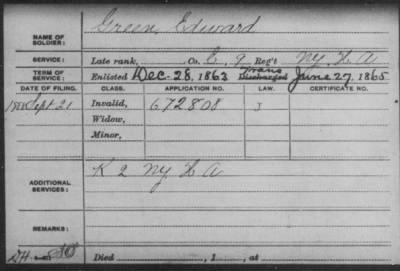 NAME OF SOLDIER: Green, Edward
SERVICE: Late rank, Co. C, 9 Reg't NY. H A
TERM OF SERVICE: Enlisted Dec. 28, 1863 Trans Discharged June 27, 1865
DATE OF FILING. CLASS. APPLICATION NO. LAW. CERTIFICATE NO.
1888 Sept 21 Invalid, 672808 J
Widow,
Minor,
ADDITIONAL SERVICES: K 2 NY. H A
REMARKS:
Died , 1 , at